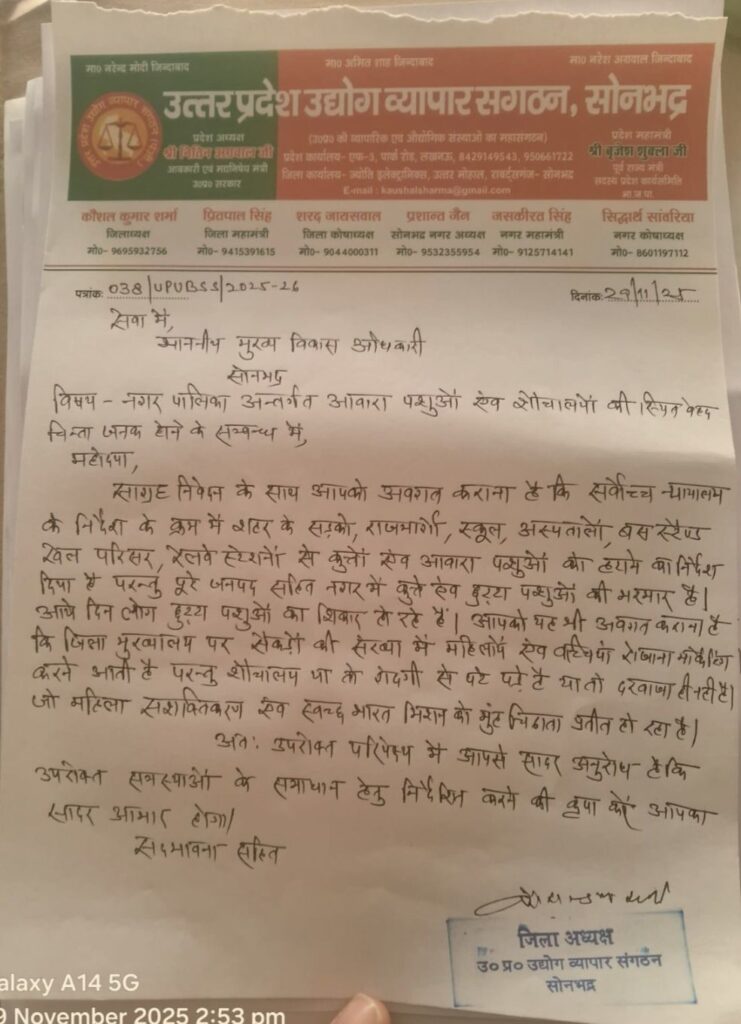 मा० नरेन्द्र मोदी जिन्दाबाद
मा० अमित शाह जिन्दाबाद
मा० नरेश अग्रवाल जिन्दाबाद
उत्तर प्रदेश उद्योग व्यापार सगठन, सोनभद्र
(उ०प्र० की व्यापारिक एवं औद्योगिक संस्थाओं का महासंगठन)
प्रदेश कार्यालय- एफ-5, पार्क रोड, लखनऊ, 8429149543, 950661722
जिला कार्यालय- ज्योति इलेक्ट्रानिक्स, उत्तर मोहाल, राबर्ट्सगंज- सोनभद्र
E-mail : kaushalsharma@gmail.com
प्रदेश अध्यक्ष
श्री नितिन अग्रवाल जी
आबकारी एवं मद्यनिषेध मंत्री
उ०प्र० सरकार
प्रदेश महामंत्री
श्री बृजेश शुक्ला जी
पूर्व राज्य मंत्री
सदस्य प्रदेश कार्यसमिति
भा.ज.पा.
कौशल कुमार शर्मा प्रितपाल सिंह शरद जायसवाल प्रशान्त जैन जसकीरत सिंह सिद्धार्थ सांवरिया
जिलाध्यक्ष जिला महामंत्री जिला कोषाध्यक्ष सोनभद्र नगर अध्यक्ष नगर महामंत्री नगर कोषाध्यक्ष
मो०- 9695932756 मो०- 9415391615 मो०- 9044000311 मो०- 9532355954 मो०- 9125714141 मो०- 8601197112
पत्रांक: 038/UPUBSS/2025-26 दिनांक: 29/11/25
सेवा में,
माननीय मुख्य विकास अधिकारी
सोनभद्र
विषय - नगर पालिका अन्तर्गत आवारा पशुओं एंव शौचालयों की स्थित बेहद
चिन्ता जनक होने के सम्बन्ध में,
महोदया,
साग्रह निवेदन के साथ आपको अवगत कराना है कि सर्वोच्च न्यायालय
के निर्देश के क्रम में शहर के सड़को, राजमार्गो, स्कूल, अस्पतालों, बस स्टैण्ड
खेल परिसर, रेलवे स्टेशनों से कुत्तों एंव आवारा पशुओं को हटाने का निर्देश
दिया है परन्तु पूरे जनपद सहित नगर में कुत्ते एंव छुट्टा पशुओं की भरमार है।
आये दिन लोग छुट्टा पशुओं का शिकार हो रहे हैं। आपको यह भी अवगत कराना है
कि जिला मुख्यालय पर सैकड़ों की संख्या में महिलायें एंव बच्चियां रोजाना मार्केटिंग
करने आती है परन्तु शौचालय या तो गंदगी से पटे पड़े है या तो दरवाजा ही नही है।
जो महिला सशक्तिकरण एंव स्वच्छ भारत मिशन को मुंह चिढाता प्रतीत हो रहा है।
अतः उपरोक्त परिपेक्ष्य में आपसे सादर अनुरोध है कि
उपरोक्त समस्याओं के समाधान हेतु निर्देशित करने की कृपा करें आपका
सादर आभार होगा।
सदभावना सहित
जिला अध्यक्ष
उ० प्र० उद्योग व्यापार संगठन
सोनभद्र
alaxy A14 5G
9 November 2025 2:53 pm